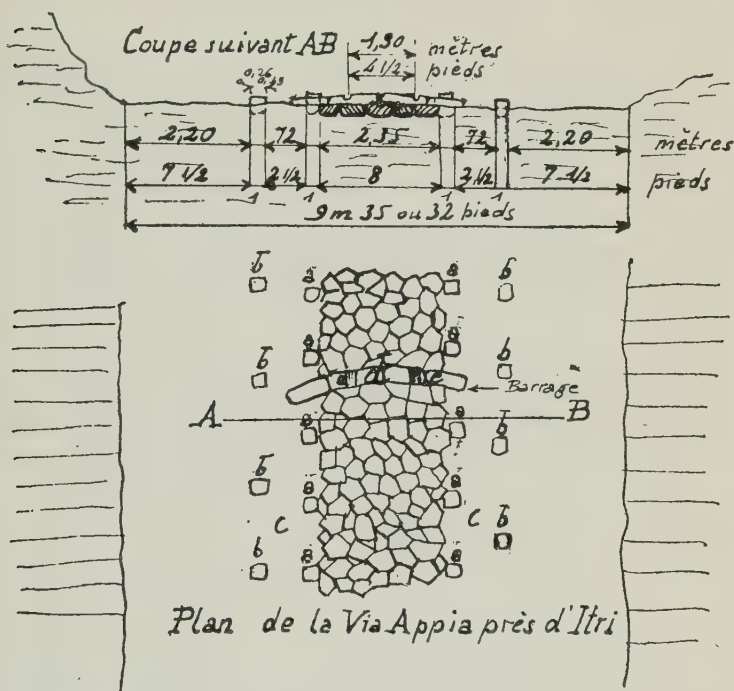 Coupe suivant AB
1,90 mètres
4 1/2 pieds
0,26 0,49
2,20 72 2,35 72 2,20 mètres
7 1/2 1 2 1/2 1 8 1 2 1/2 1 7 1/2 pieds
9 m 35 ou 32 pieds
b a a b
a a
b b
d e
Barrage
A B
a a b
b a a
C C b
b a a
Plan de la Via Appia près d'Itri